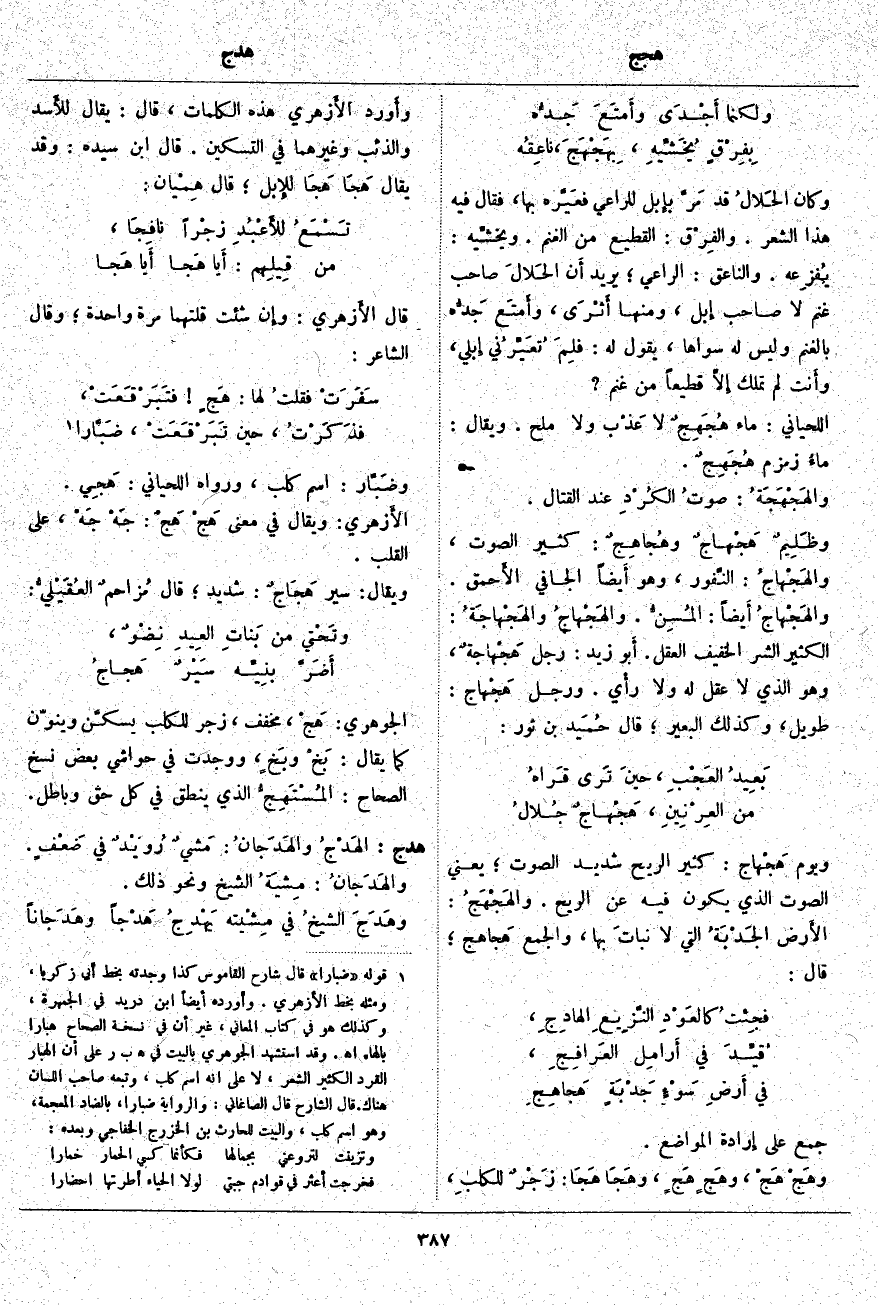 هجج
هدج
ولكنما أَجْدَى وأَمتَعَ جَدُّه
بِفِرْقٍ يُخَشِّيهِ ، بِهَجْهَجَ ، ناعِقُه
وكان الحَلالُ قد مَرَّ بإبل للراعي فعَيَّره بها، فقال فيه
هذا الشعر . والفِرْق : القطيع من الغنم . ويخشِّيه :
يُفزعه . والناعق : الراعي ؛ يريد أن الحَلالَ صاحب
غنم لا صاحب إبل ، ومنها أَثْرَى ، وأَمتَع جَدُّه
بالغنم وليس له سواها ، يقول له : فلِمَ تُعَيِّرُني إبلي،
وأَنت لم تملك إلاَّ قطيعاً من غنم ؟
اللحياني : ماء هُجَهِجٌ لا عَذْب ولا ملح . ويقال :
ماءُ زمزم هُجَهِجٌ .
والهَجْهَجَةُ : صوتُ الكُرْدِ عند القتال .
وظَلِيمٌ هَجْهاجٌ وهُجاهِجٌ : كثير الصوت ،
والهَجْهاجُ : النَّفور ، وهو أَيضاً الجافي الأَحمق .
والهَجْهاجُ أَيضاً : المُسِنُّ . والهَجْهاجُ والهَجْهاجَةُ :
الكثير الشر الخفيف العقل. أَبو زيد : رجل هَجْهاجةٌ ،
وهو الذي لا عقل له ولا رأْي . ورجل هَجْهاج :
طويل، وكذلك البعير ؛ قال حُمَيد بن ثور :
بَعِيدُ العَجْبِ ، حينَ تَرى قَراهُ
من العِرْنِينِ ، هَجْهاجٌ جُلالُ
ويوم هَجْهاج : كثير الريح شديد الصوت ؛ يعني
الصوت الذي يكون فيه عن الريح . والهَجْهَجُ :
الأَرض الجَدْبَةُ التي لا نبات بها ، والجمع هَجاهج ؛
قال :
فجِئْتُ كالعَوْدِ النَّزِيعِ الهادِجِ ،
قُيِّدَ في أَرامِلِ العَرافِجِ ،
في أَرضِ سَوْءٍ جَدْبَةٍ هَجاهِجِ
جمع على إرادة المواضع .
وهَجْ هَجْ ، وهَجٍ هَجٍ ، وهَجَا هَجَا : زَجْرٌ للكلبِ،
وأَورد الأَزهري هذه الكلمات ، قال : يقال للأَسد
والذئب وغيرهما في التسكين . قال ابن سيده : وقد
يقال هَجَا هَجَا للإِبل ؛ قال هِمْيان:
تَسْمَعُ للأَعْبُدِ زجْراً نافِجَا ،
من قِيلِهم : أَيا هَجَا أَيا هَجَا
قال الأَزهري : وإن شئت قلتهما مرة واحدة ؛ وقال
الشاعر :
سَفَرَتْ فقلتُ لها : هَجٍ ! فتَبَرْقَعَتْ ،
فذَكَرْتُ ، حين تَبَرْقَعَتْ ، ضَبَّارا١
وضَبَّار : اسم كلب ، ورواه اللحياني : هَجِي .
الأَزهري: ويقال في معنى هَجْ هَجْ : جَهْ جَهْ ، على
القلب .
ويقال: سير هَجَاجٌ : شديد ؛ قال مُزاحم العُقَيْليُّ:
وتَحْتِي من بَناتِ العِيدِ نِضْوٌ ،
أَضَرَّ بنِيِّه سَيْرٌ هَجاجُ
الجوهري : هَجْ ، مخفف ، زجر للكلب يسكَّن وينوَّن
كما يقال : بَخْ وبَخٍ ، ووجدت في حواشي بعض نسخ
الصحاح : المُسْتَهِجُّ الذي ينطق في كل حق وباطل.
هدج : الهَدْجُ والهَدَجانُ : مَشيٌ رُوَيْدٌ في ضَعْفٍ.
والهَدَجانُ : مِشيَةُ الشيخ ونحو ذلك .
وهَدَجَ الشيخُ في مِشْيَته يَهْدِجُ هَدْجاً وهَدَجاناً
١ قوله «ضبارا» قال شارح القاموس كذا وجدته بخط أبي زكريا ،
ومثله بخط الأزهري . وأورده أيضاً ابن دريد في الجمهرة ،
وكذلك هو في كتاب المعاني ، غير أن في نسخة الصحاح هبارا
بالهاء اه . وقد استشهد الجوهري بالبيت في ه ب ر على أن الهبار
القرد الكثير الشعر ، لا على انه اسم كلب ، وتبعه صاحب اللسان
هناك.قال الشارح قال الصاغاني : والرواية ضبارا، بالضاد المعجمة،
وهو اسم كلب ، والبيت للحارث بن الخزرج الخفاجي وبعده :
وتزينت لتروعني بجمالها فكأنما كسي الحمار خمارا
فخرجت أعثر في قوادم جبتي لولا الحياء أطرتها احضارا
٣٨٧